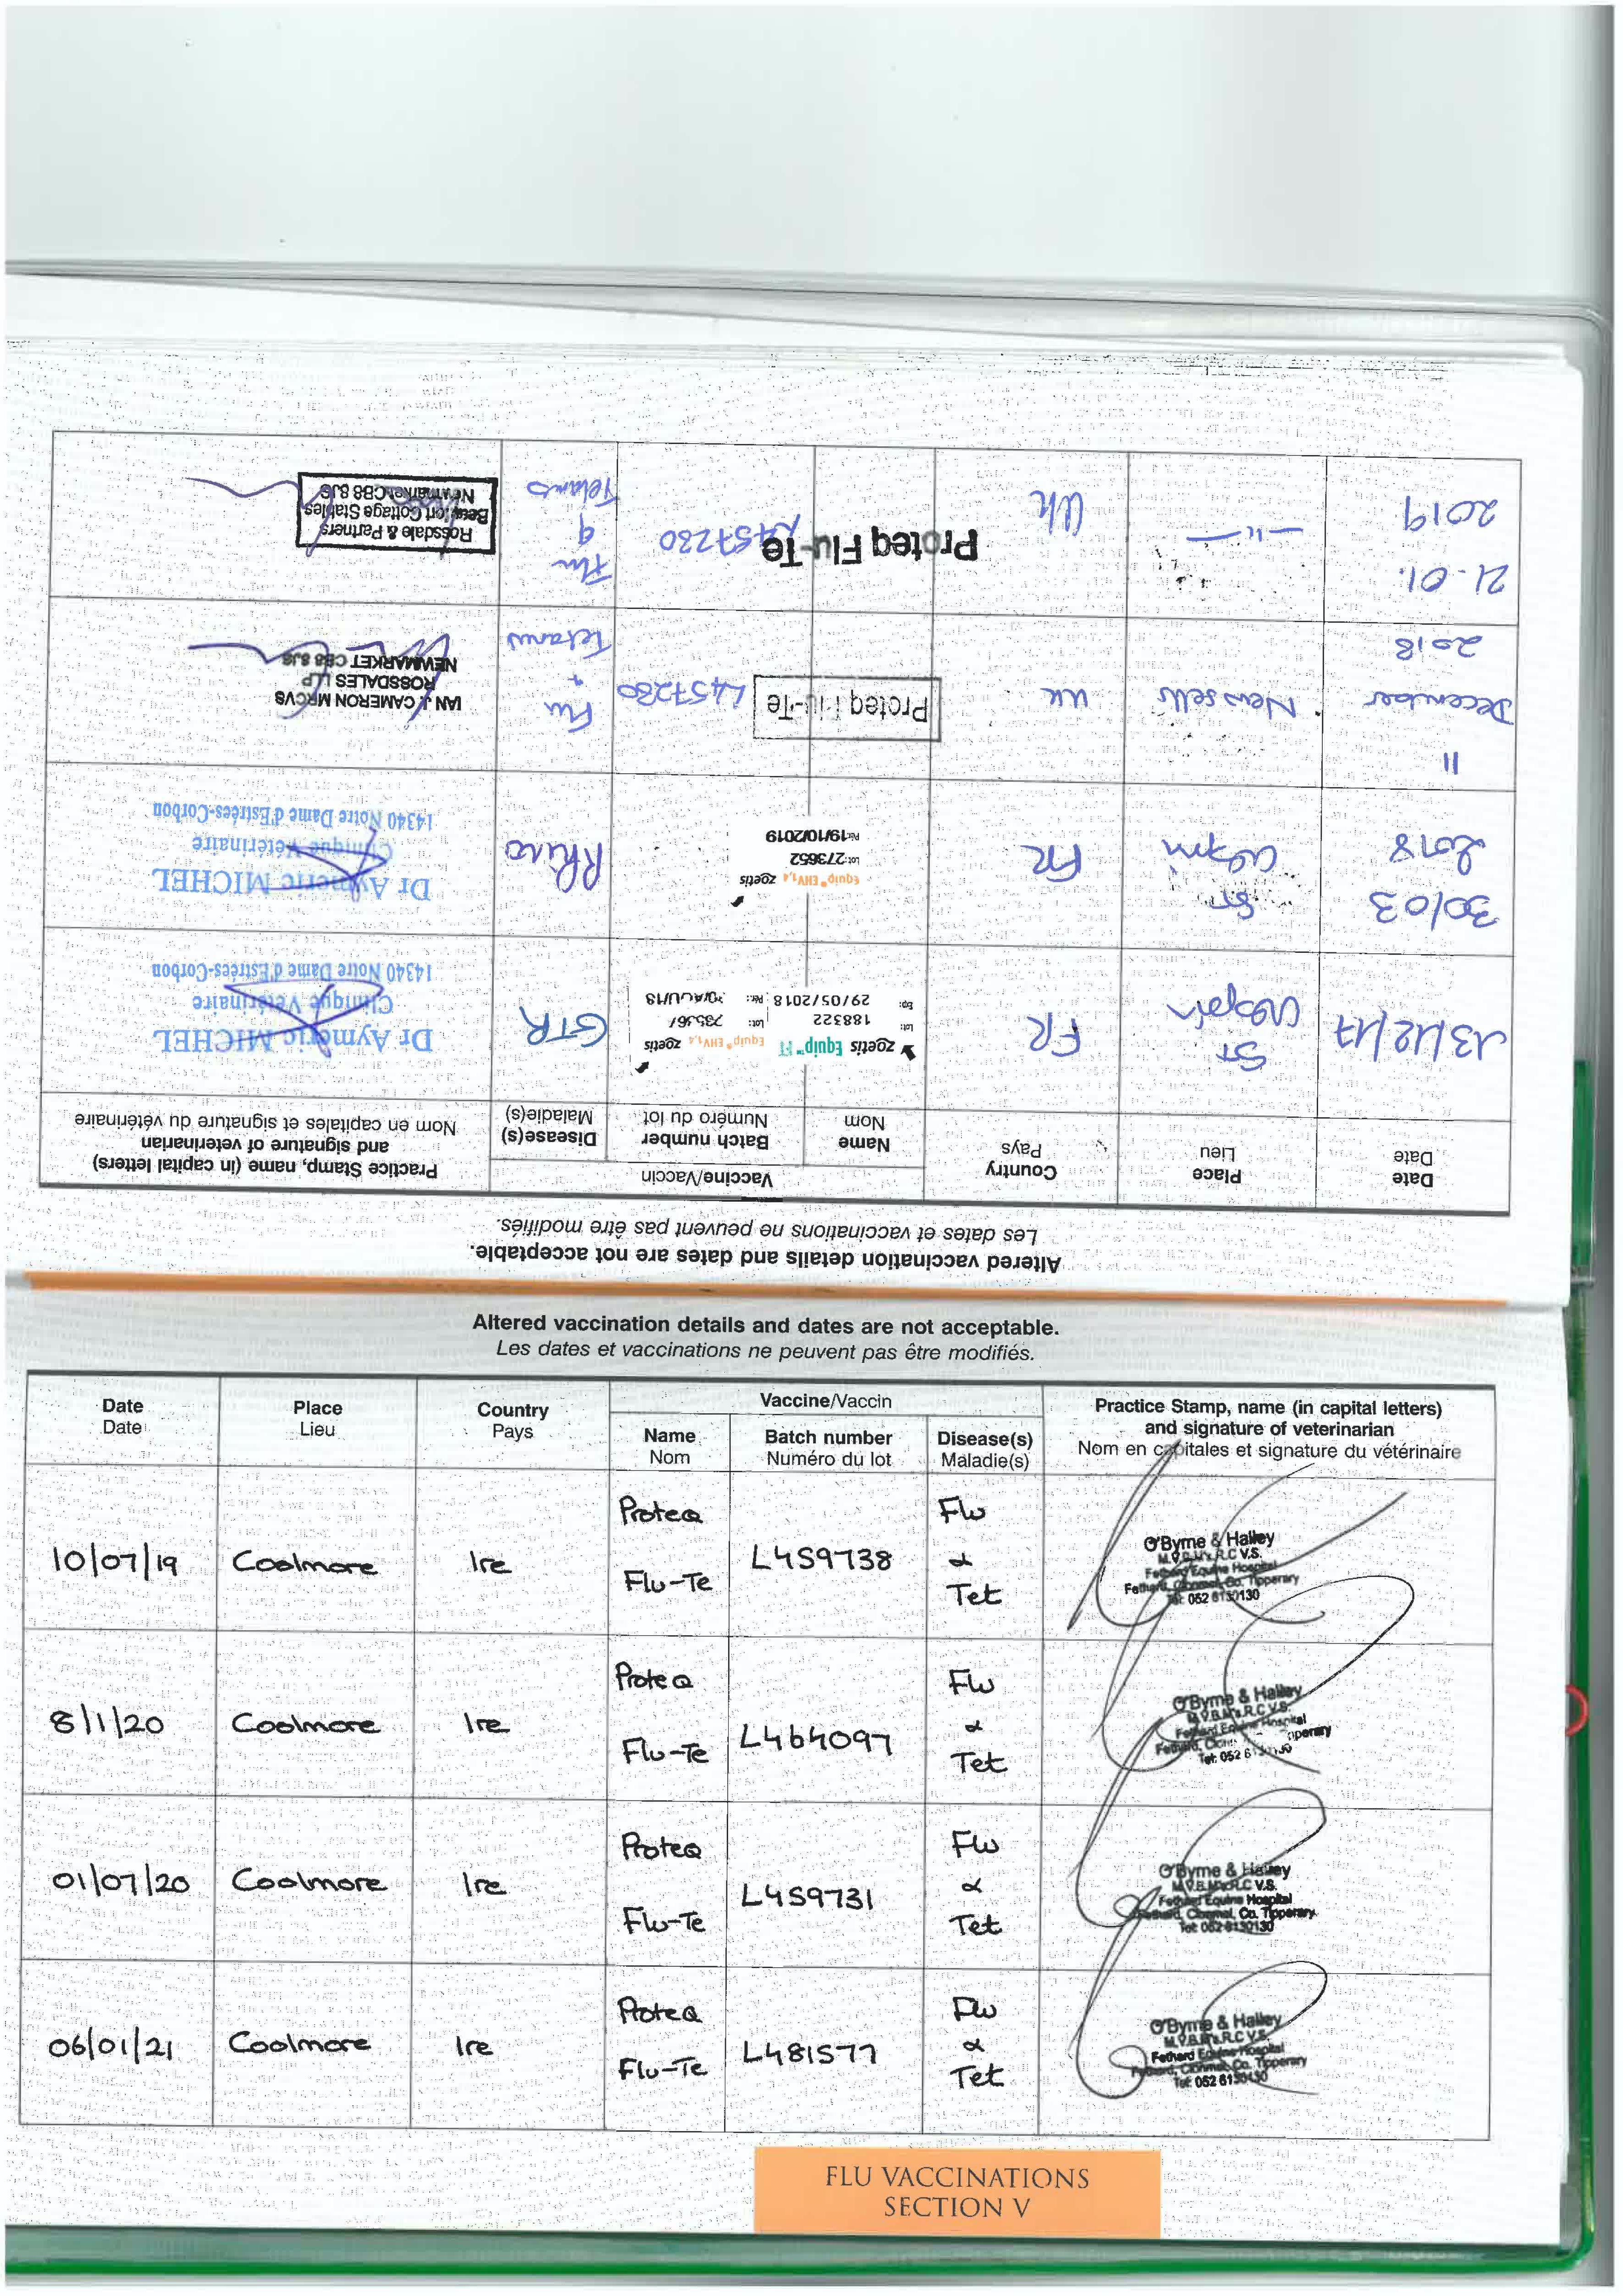 Altered vaccination details and dates are not acceptable.
Les dates et vaccinations ne peuvent pas être modifiés.
Date
Date
Place
Lieu
Country
Pays
Vaccine/Vaccin
Name
Nom
Batch number
Numéro du lot
Disease(s)
Maladie(s)
Practice Stamp, name (in capital letters)
and signature of veterinarian
Nom en capitales et signature du vétérinaire
13/12/17
ST
FR
zoetis Equip
Lot: 188322
Exp: 29/05/2018
Equip EHV1,4 zoetis
Lot:
Per:
GTR
Dr Aymeric MICHEL
Clinique Vétérinaire
14340 Notre Dame d'Estrées-Corbon
30/03
2018
ST
FR
Equip EHV1,4 zoetis
Lot: 273652
Per: 19/10/2019
Rhino
Dr Aymeric MICHEL
Clinique Vétérinaire
14340 Notre Dame d'Estrées-Corbon
11
December
2018
Newsells
UK
Proteq Flu-Te
L457280
Flu
+
Tetanus
IAN J CAMERON MRCVS
ROSSDALES LLP
NEWMARKET CB8 8JS
21-01.
2019
— " —
UK
Proteq Flu-Te
L457280
Flu
&
Tetanus
Rossdale & Partners
Beaufort Cottage Stables
Newmarket CB8 8JS
Altered vaccination details and dates are not acceptable.
Les dates et vaccinations ne peuvent pas être modifiés.
Date
Date
Place
Lieu
Country
Pays
Vaccine/Vaccin
Name
Nom
Batch number
Numéro du lot
Disease(s)
Maladie(s)
Practice Stamp, name (in capital letters)
and signature of veterinarian
Nom en capitales et signature du vétérinaire
10/07/19
Coolmore
Ire
Proteq
Flu-Te
L459738
Flu
&
Tet
O'Byrne & Halley
M.V.B. M's.R.C.V.S.
Fethard Equine Hospital
Fethard, Clonmel, Co. Tipperary
Tel: 052 6130130
8/1/20
Coolmore
Ire
Proteq
Flu-Te
L464097
Flu
&
Tet
O'Byrne & Halley
M.V.B. M's.R.C.V.S.
Fethard Equine Hospital
Fethard, Clonmel, Co. Tipperary
Tel: 052 6130130
01/07/20
Coolmore
Ire
Proteq
Flu-Te
L459731
Flu
&
Tet
O'Byrne & Halley
M.V.B. M's.R.C.V.S.
Fethard Equine Hospital
Fethard, Clonmel, Co. Tipperary
Tel: 052 6130130
06/01/21
Coolmore
Ire
Proteq
Flu-Te
L481577
Flu
&
Tet
O'Byrne & Halley
M.V.B. M's.R.C.V.S.
Fethard Equine Hospital
Fethard, Clonmel, Co. Tipperary
Tel: 052 6130130
FLU VACCINATIONS
SECTION V